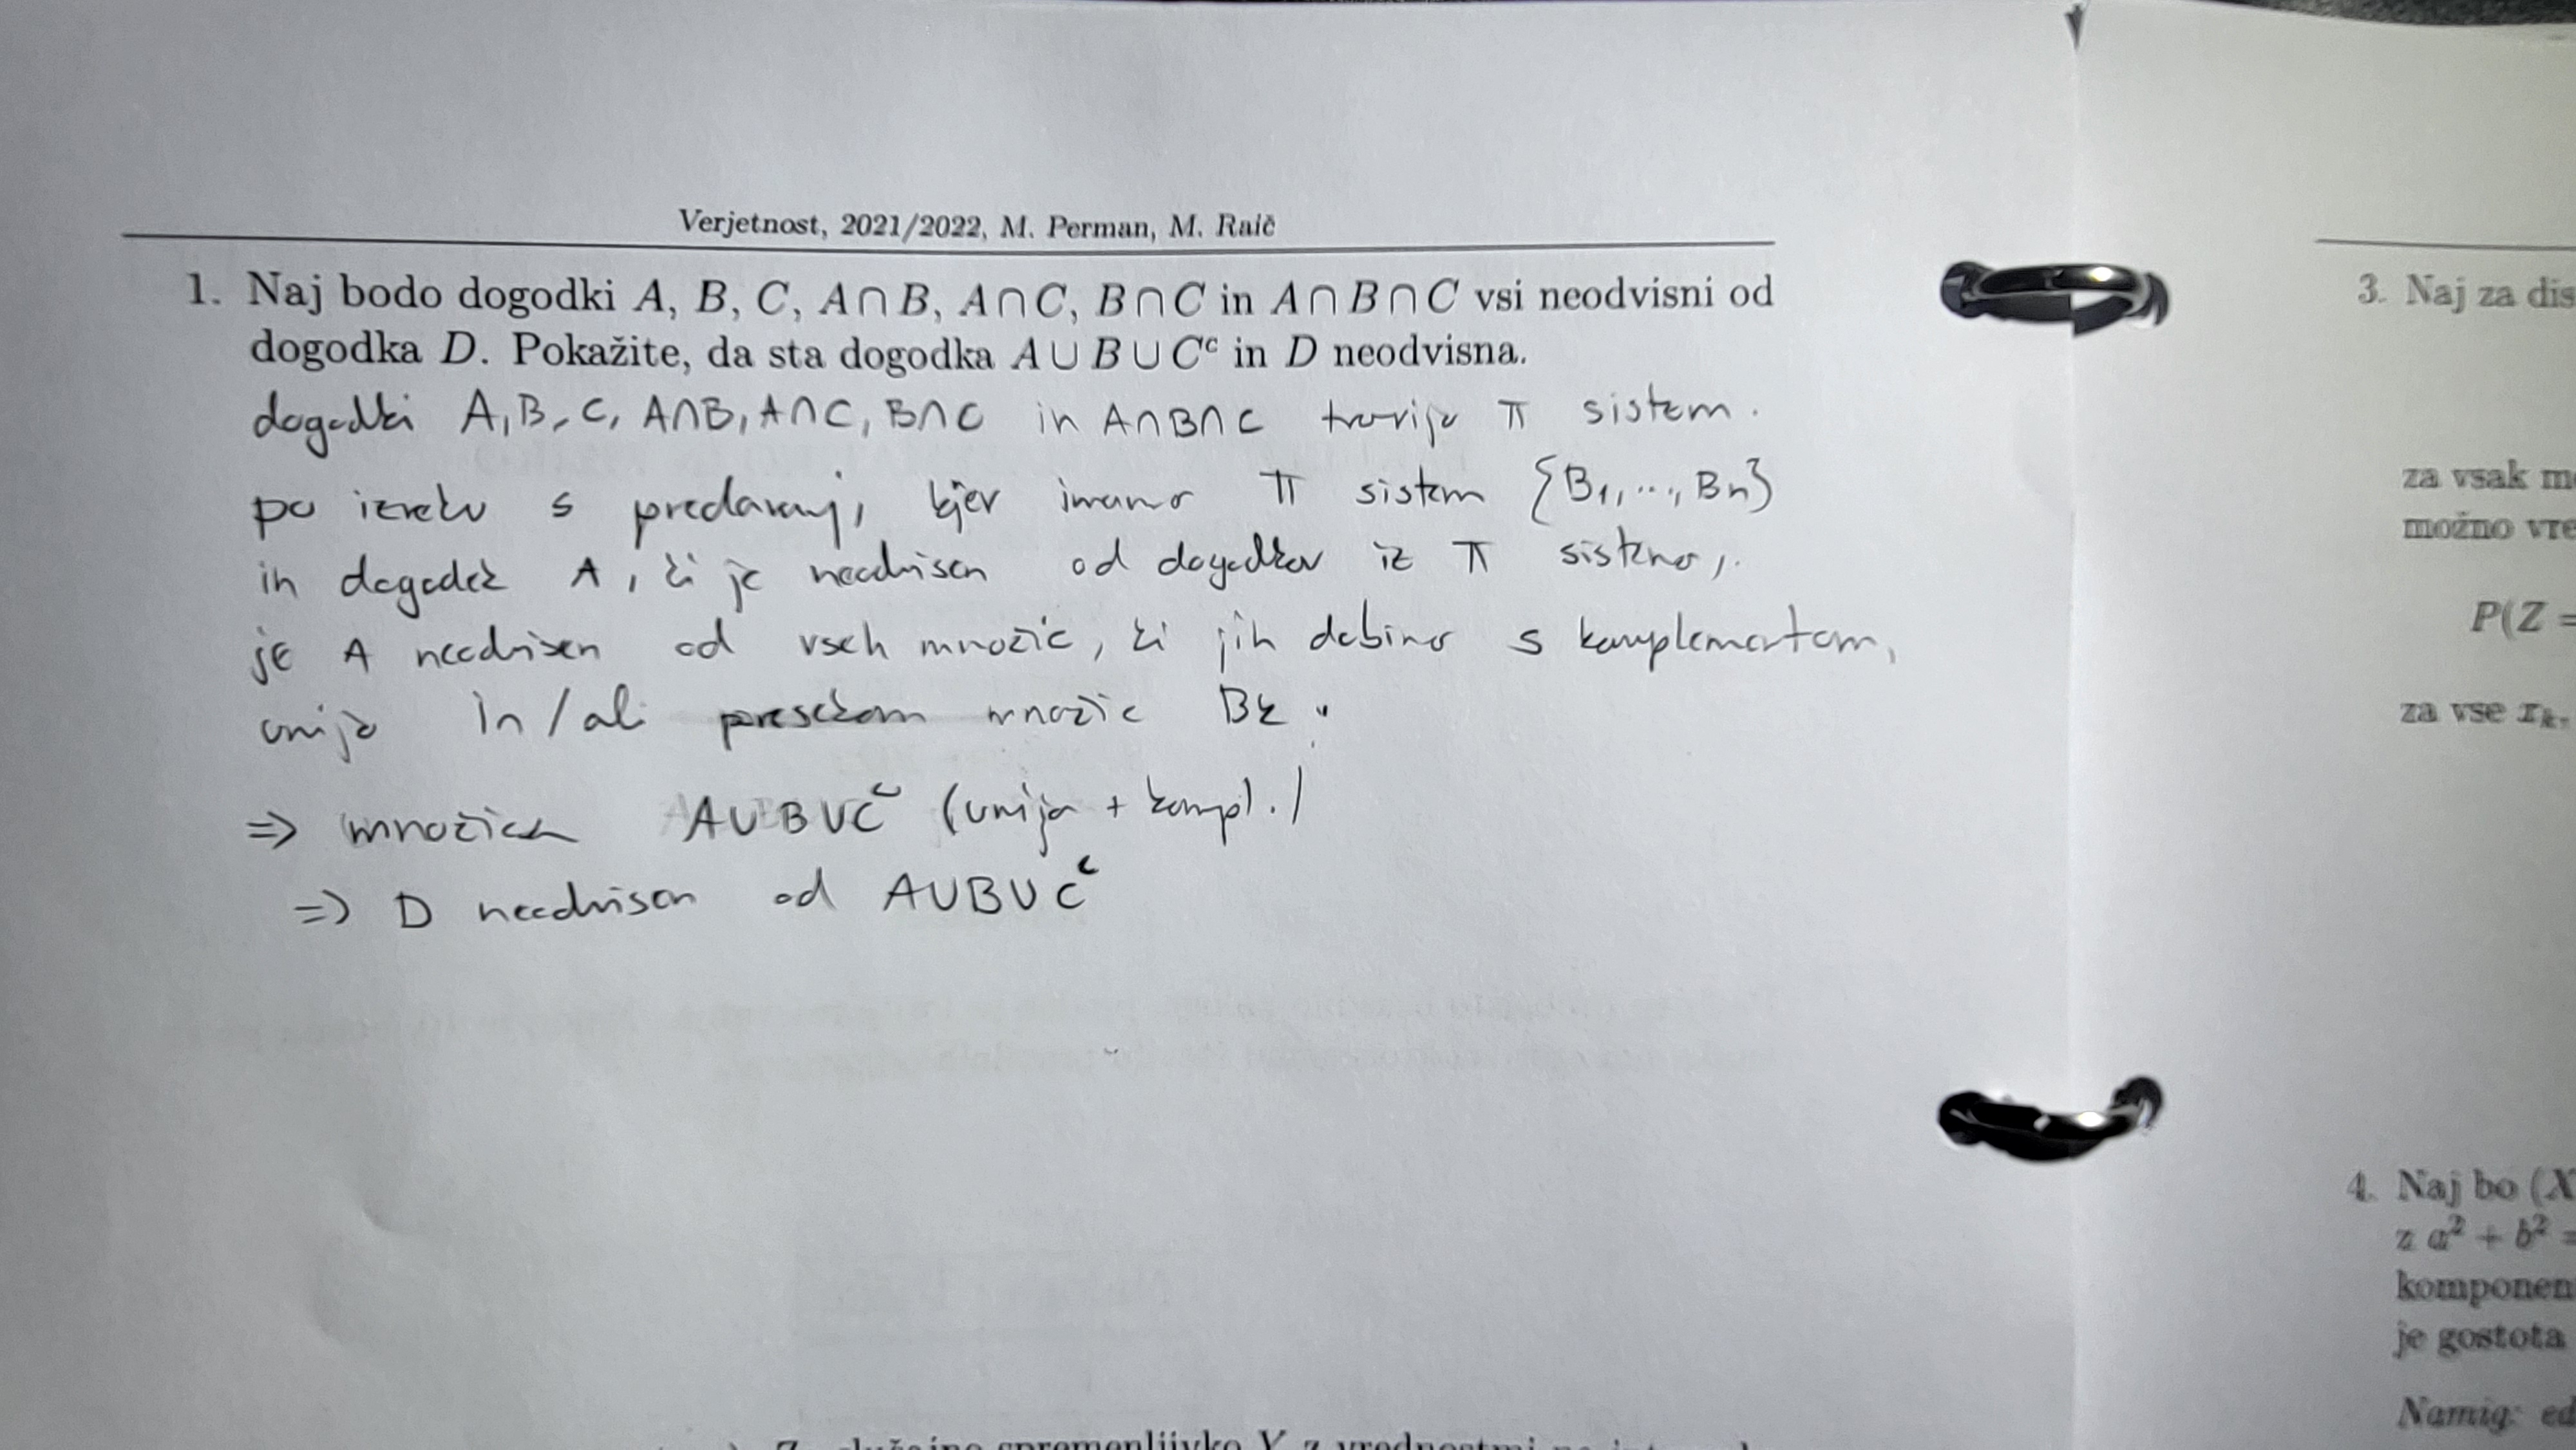 Verjetnost, 2021/2022, M. Perman, M. Raič
1. Naj bodo dogodki A, B, C, A ∩ B, A ∩ C, B ∩ C in A ∩ B ∩ C vsi neodvisni od
dogodka D. Pokažite, da sta dogodka A ∪ B ∪ Cᶜ in D neodvisna.
dogodki A, B, C, A∩B, A∩C, B∩C in A∩B∩C tvorijo π sistem.
po izreku s predavanj, kjer imamo π sistem {B1, .., Bn}
in dogodek A, ki je neodvisen od dogodkov iz π sistema,
je A neodvisen od vseh množic, ki jih dobimo s komplementom,
unijo in/ali presekom množic Bk."
⇒ množica A∪B∪Cᶜ (unija + kompl.)
⇒ D neodvisen od A∪B∪Cᶜ
3. Naj za dis
za vsak
možno vre
P(Z =
za vse xₖ,
4. Naj bo (X
z a² + b² =
komponen
je gostota
Namig: ed